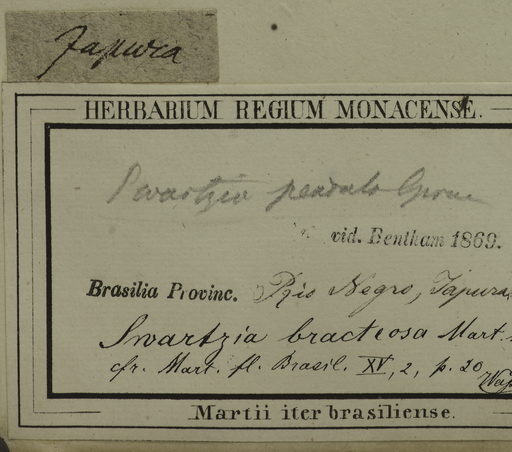 Japura
HERBARIUM REGIUM MONACENSE.
Swartzia
vid. Bentham 1869.
Brasilia Provinc. Rio Negro, Japura
Swartzia bracteosa Mart.
cfr. Mart. fl. Brasil. XV, 2, p. 20
Martii iter brasiliense.